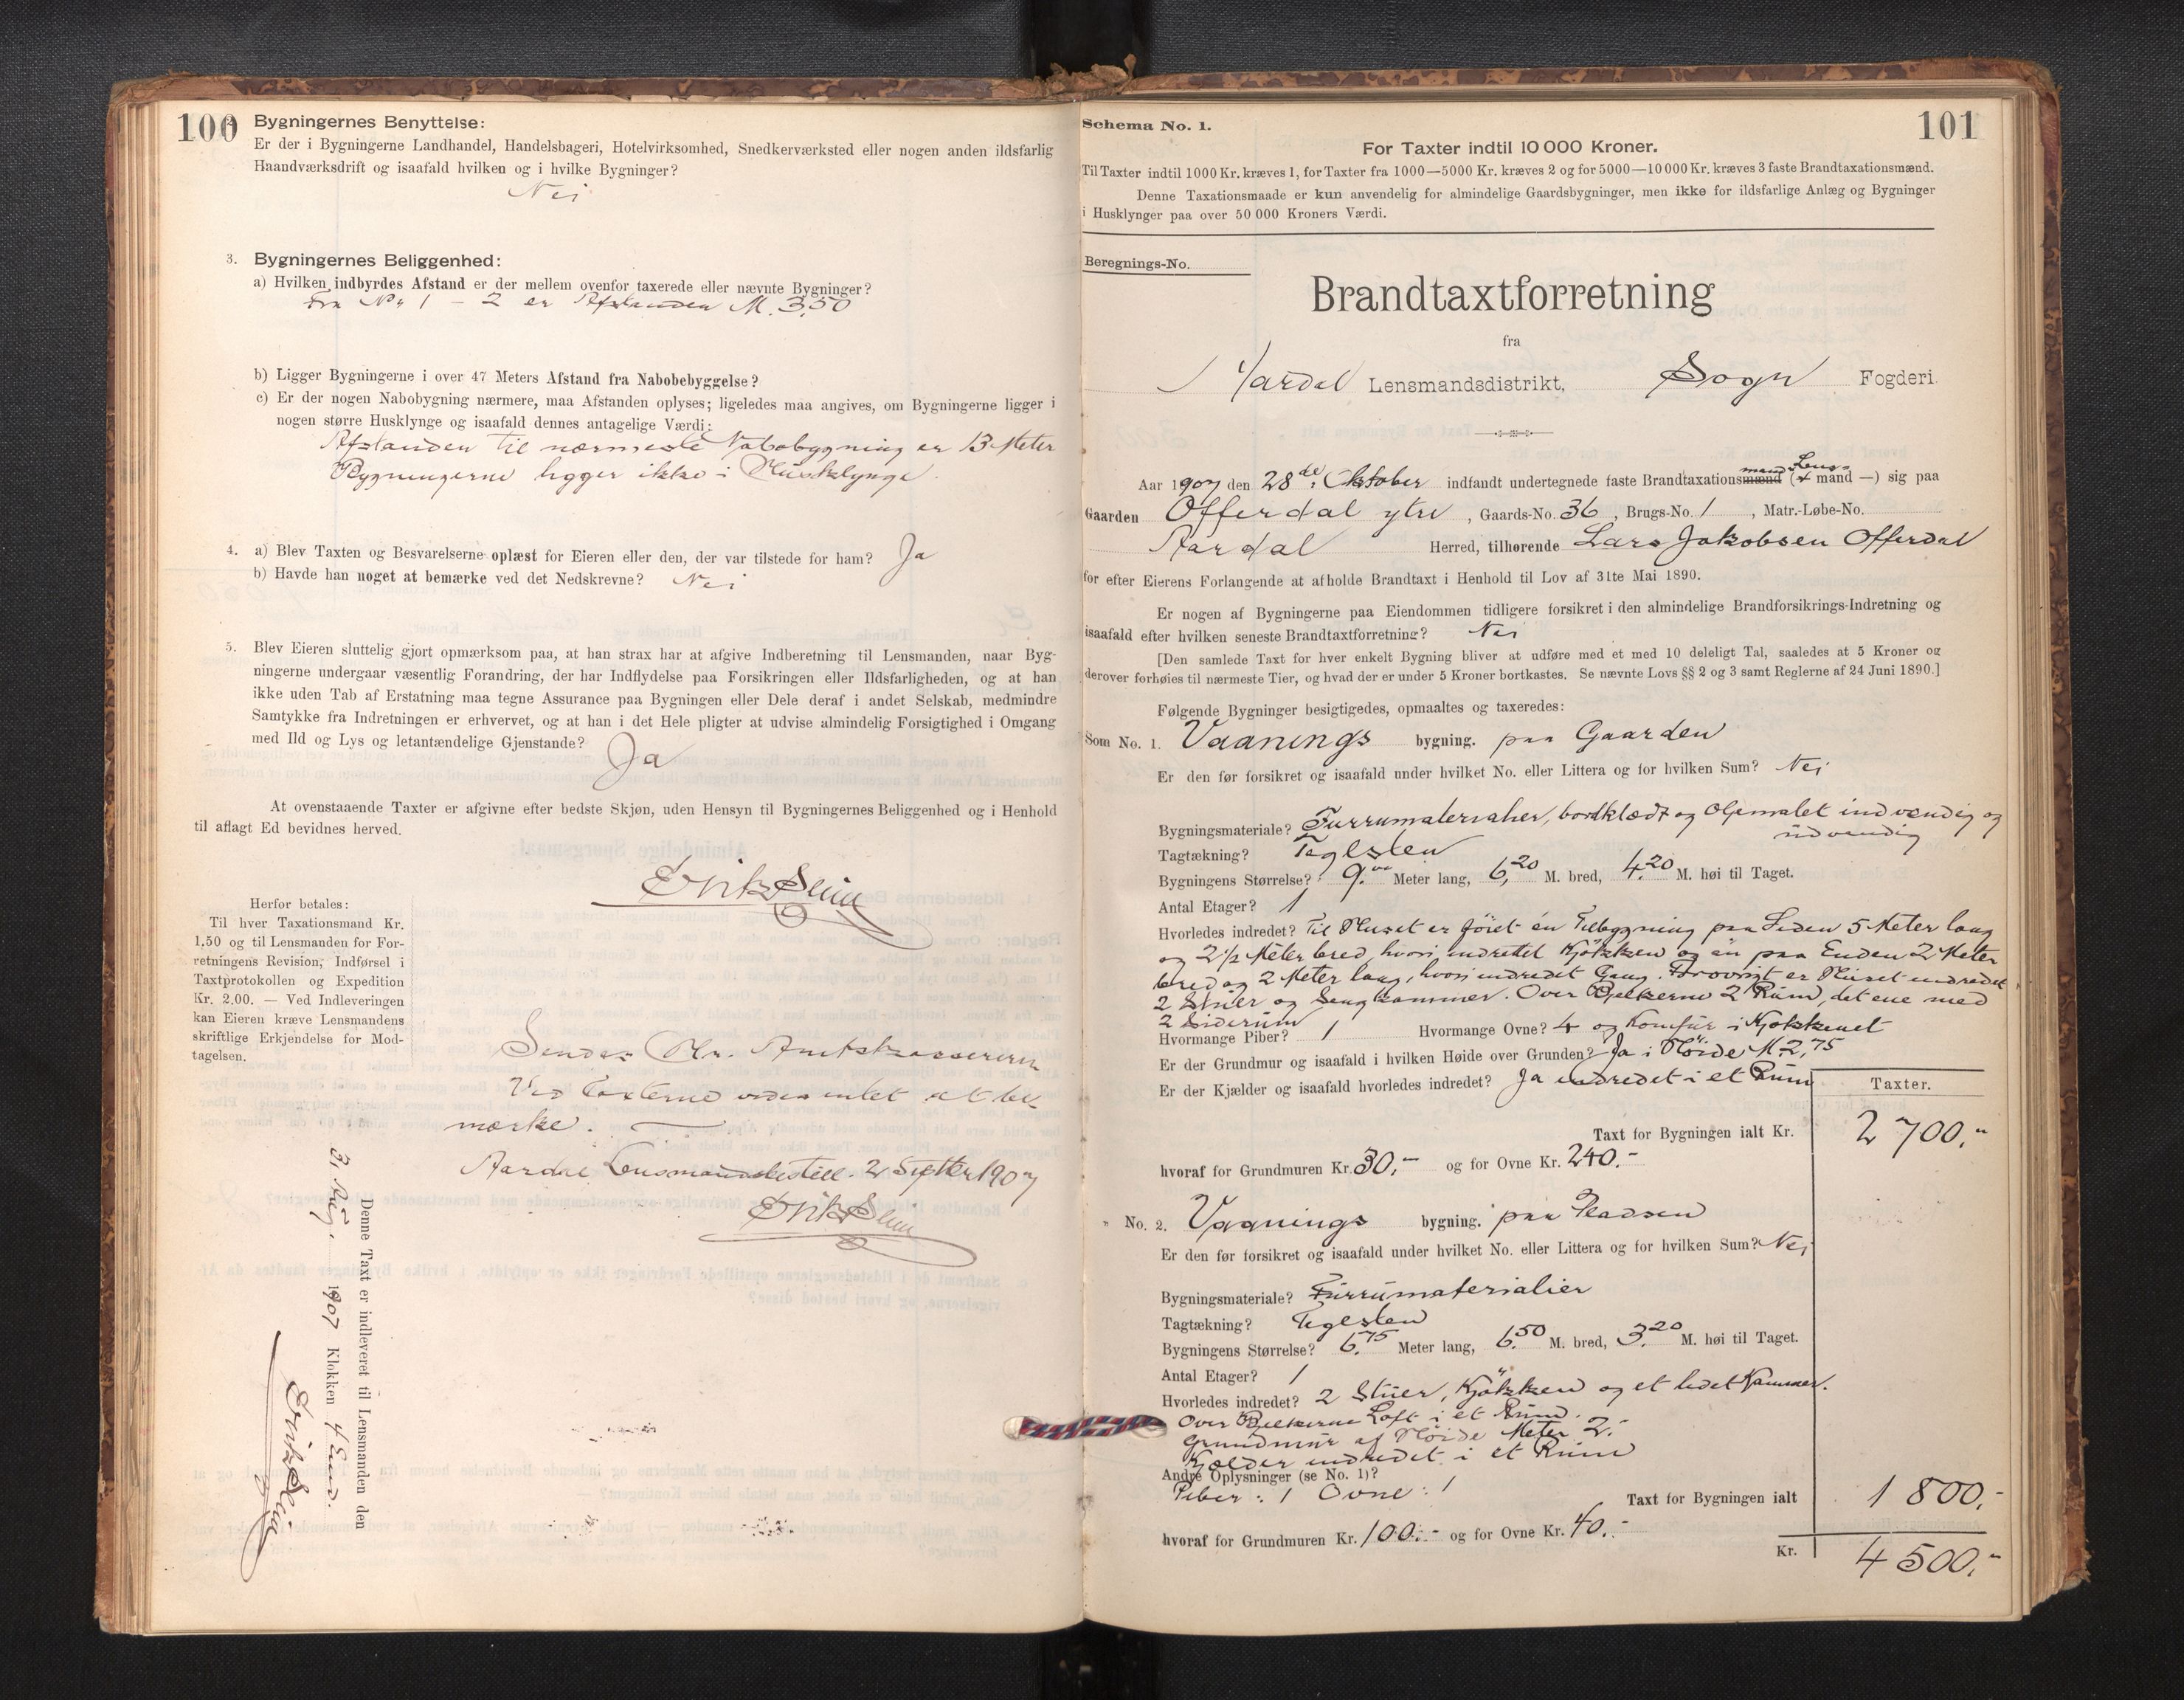 100
2. Bygningernes Benyttelse:
Er der i Bygningerne Landhandel, Handelsbageri, Hotelvirksomhed, Snedkerværksted eller nogen anden ildsfarlig
Haandværksdrift og isaafald hvilken og i hvilke Bygninger?
Nei
3. Bygningernes Beliggenhed:
a) Hvilken indbyrdes Afstand er der mellem ovenfor taxerede eller nævnte Bygninger?
Fra No 1 - 2 er Afstanden M. 3,50
b) Ligger Bygningerne i over 47 Meters Afstand fra Nabobebyggelse?
c) Er der nogen Nabobygning nærmere, maa Afstanden oplyses; ligeledes maa angives, om Bygningerne ligger i
nogen større Husklynge og isaafald dennes antagelige Værdi:
Afstanden til nærmeste Nabobygning er 13 Meter
Bygningerne ligger ikke i Husklynge
4. a) Blev Taxten og Besvarelserne oplæst for Eieren eller den, der var tilstede for ham? Ja
b) Havde han noget at bemærke ved det Nedskrevne? Nei
5. Blev Eieren sluttelig gjort opmærksom paa, at han strax har at afgive Indberetning til Lensmanden, naar Byg-
ningerne undergaar væsentlig Forandring, der har Indflydelse paa Forsikringen eller Ildsfarligheden, og at han
ikke uden Tab af Erstatning maa tegne Assurance paa Bygningen eller Dele deraf i andet Selskab, medmindre
Samtykke fra Indretningen er erhvervet, og at han i det Hele pligter at udvise almindelig Forsigtighed i Omgang
med Ild og Lys og letantændelige Gjenstande? Ja
At ovenstaaende Taxter er afgivne efter bedste Skjøn, uden Hensyn til Bygningernes Beliggenhed og i Henhold
til aflagt Ed bevidnes herved.
Erik Slin
Herfor betales:
Til hver Taxationsmand Kr.
1.50 og til Lensmanden for For-
retningens Revision, Indførsel i
Taxtprotokollen og Expedition
Kr. 2.00. — Ved Indleveringen
kan Eieren kræve Lensmandens
skriftlige Erkjendelse for Mod-
tagelsen.
Sendes Hr. Amtskassereren
Ved Taxterne vides intet at be-
mærke.
Aardal Lensmandsbestill. 2 Septbr 1907
Erik Slin
Denne Taxt er indleveret til Lensmanden den
3. Aug. 1907 Klokken 4 Emd.
Erik Slin
Schema No. 1.
101
For Taxter indtil 10 000 Kroner.
Til Taxter indtil 1000 Kr. kræves 1, for Taxter fra 1000—5000 Kr. kræves 2 og for 5000—10 000 Kr. kræves 3 faste Brandtaxationsmænd.
Denne Taxationsmaade er kun anvendelig for almindelige Gaardsbygninger, men ikke for ildsfarlige Anlæg og Bygninger
i Husklynger paa over 50 000 Kroners Værdi.
Beregnings-No.
Brandtaxtforretning
fra
Aardal Lensmandsdistrikt, Sogn Fogderi.
Aar 1907 den 28de Oktober indfandt undertegnede faste Brandtaxationsmænd mand (Lens-mand —) sig paa
Gaarden Offerdal ytre, Gaards-No. 36, Brugs-No. 1, Matr.-Løbe-No.
Aardal Herred, tilhørende Lars Jakobsen Offerdal
for efter Eierens Forlangende at afholde Brandtaxt i Henhold til Lov af 31te Mai 1890.
Er nogen af Bygningerne paa Eiendommen tidligere forsikret i den almindelige Brandforsikrings-Indretning og
isaafald efter hvilken seneste Brandtaxtforretning? Nei
[Den samlede Taxt for hver enkelt Bygning bliver at udføre med et med 10 deleligt Tal, saaledes at 5 Kroner og
derover forhøies til nærmeste Tier, og hvad der er under 5 Kroner bortkastes. Se nævnte Lovs §§ 2 og 3 samt Reglerne af 24 Juni 1890.]
Følgende Bygninger besigtigedes, opmaaltes og taxeredes:
Som No. 1. Vaanings bygning. paa Gaarden
Er den før forsikret og isaafald under hvilket No. eller Littera og for hvilken Sum? Nei
Bygningsmateriale? Furrumaterialier, bordklædt og Oljemalet indvendig og
udvendig
Tagtækning? Teglsten
Bygningens Størrelse? 9.00 Meter lang, 6,20 M. bred, 4.20 M. høi til Taget.
Antal Etager? 1
Hvorledes indredet? Til Huset er föiet en Tilbygning paa Siden 5 Meter lang
og 2 1/2 Meter bred, hvori indrettet Kjökken og en paa Enden 2 Meter
bred og 2 Meter lang, hvori indredet Gang. Forøvrigt er Huset indredet
2 Stuer og Sengkammer. Over Bjelkerne 2 Rum, det ene med
2 Siderum
Hvormange Piber? 1 Hvormange Ovne? 4 og Komfur i Kjøkkenet
Er der Grundmur og isaafald i hvilken Høide over Grunden? Ja i Höide M. 2,75
Er der Kjælder og isaafald hvorledes indredet? Ja indredet i et Rum
Taxter.
Taxt for Bygningen ialt Kr. 2 700,-
hvoraf for Grundmuren Kr. 30,- og for Ovne Kr. 240.-
" No. 2. Vaanings bygning. paa Pladsen
Er den før forsikret og isaafald under hvilket No. eller Littera og for hvilken Sum? Nei
Bygningsmateriale? Furrumaterialier
Tagtækning? Teglsten
Bygningens Størrelse? 6.75 Meter lang, 6.50 M. bred, 3.20 M. høi til Taget.
Antal Etager? 1
Hvorledes indredet? 2 Stuer, Kjökken og et lidet Kammer.
Over Bjelkerne Loft i et Rum.
Grundmur af Höide Meter 2.-
Kjælder indredet i et Rum
Andre Oplysninger (se No. 1)?
Piber: 1 Ovne: 1
Taxt for Bygningen ialt 1 800,-
hvoraf for Grundmuren Kr. 100.- og for Ovne Kr. 40.-
Kr. 4 500,-